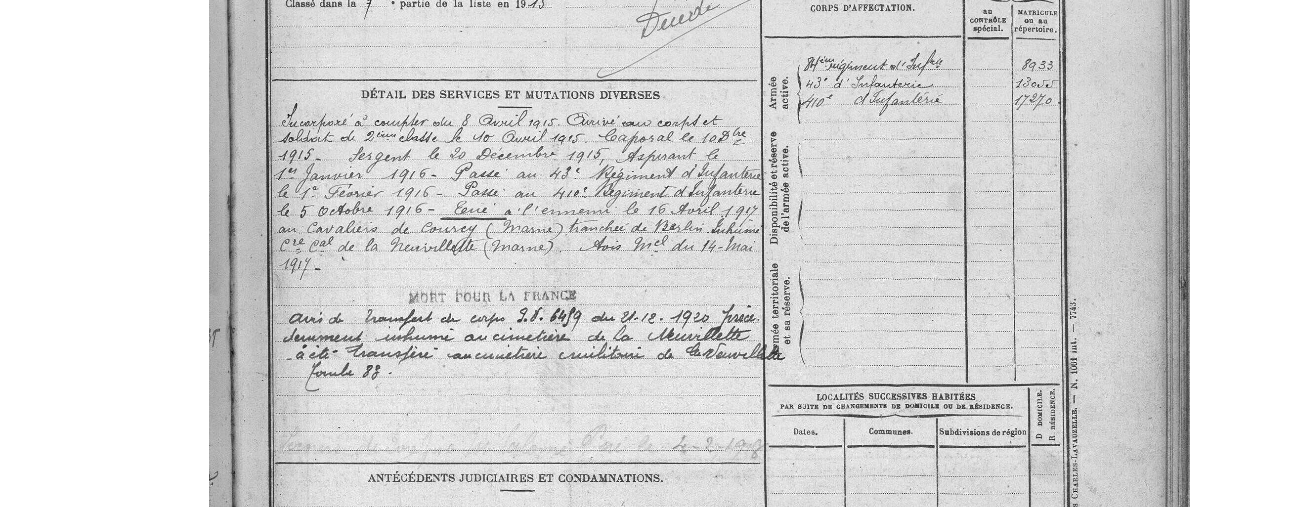 Classé dans la 7e partie de la liste en 1915
Décédé
DÉTAIL DES SERVICES ET MUTATIONS DIVERSES
Incorporé à compter du 8 Avril 1915. Arrivé au corps et
soldat de 2ème classe le 10 Avril 1915. Caporal le 10 Dbre
1915 - Sergent le 20 Décembre 1915, Aspirant le
1er Janvier 1916 - Passé au 43e Régiment d'Infanterie
le 1e Février 1916 - Passé au 410e Régiment d'Infanterie
le 5 Octobre 1916 - Tué à l'ennemi le 16 Avril 1917
au Cavaliers de Courcy (Marne) tranchée de Berlin. Inhumé
Cre Cal de la Neuvillette (Marne). Avis Mel du 14-Mai
1917 -
MORT POUR LA FRANCE
avis de transfert de corps 6459 du 21-12-1920 précé-
demment inhumé au cimetière de la Neuvillette
a été transféré au cimetière militaire de la Neuvillette
Tombe 83.
4-2-1918
ANTÉCÉDENTS JUDICIAIRES ET CONDAMNATIONS.
CORPS D'AFFECTATION.
au
CONTRÔLE
spécial.
MATRICULE
ou au
répertoire.
Armée
active.
régiment d'Infrie 8933
43e d'Infanterie
410e d'Infanterie 17270
Disponibilité et réserve
de l'armée active.
Armée territoriale
et sa réserve.
LOCALITÉS SUCCESSIVES HABITÉES
PAR SUITE DE CHANGEMENTS DE DOMICILE OU DE RÉSIDENCE.
Dates.
Communes.
Subdivisions de région
D DOMICILE.
R RÉSIDENCE.
CHARLES-LAVAUZELLE. — N. 1061 int. — 7743.